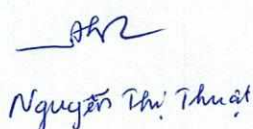 Nguyễn Thị Thuật